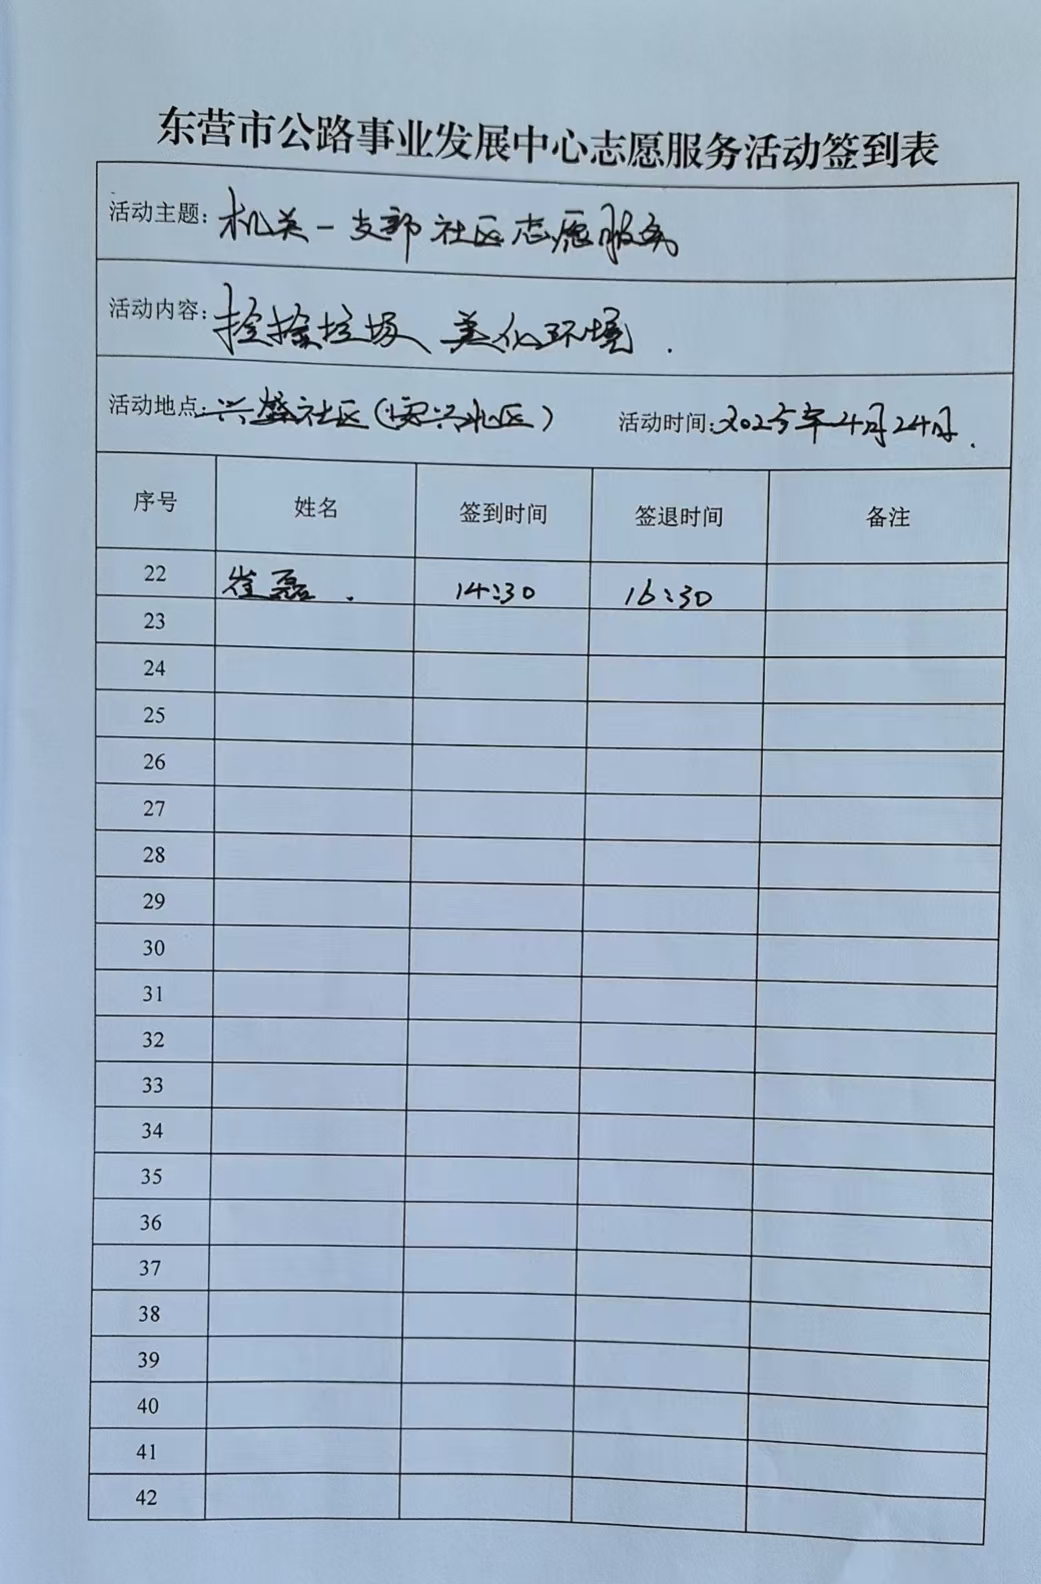 东营市公路事业发展中心志愿服务活动签到表
活动主题:机关一支部社区志愿服务
活动内容:捡拾垃圾 美化环境.
活动地点:兴盛社区(安兴北区) 活动时间:2025年4月24日.
序号 姓名 签到时间 签退时间 备注
22 崔磊. 14:30 16:30
23
24
25
26
27
28
29
30
31
32
33
34
35
36
37
38
39
40
41
42